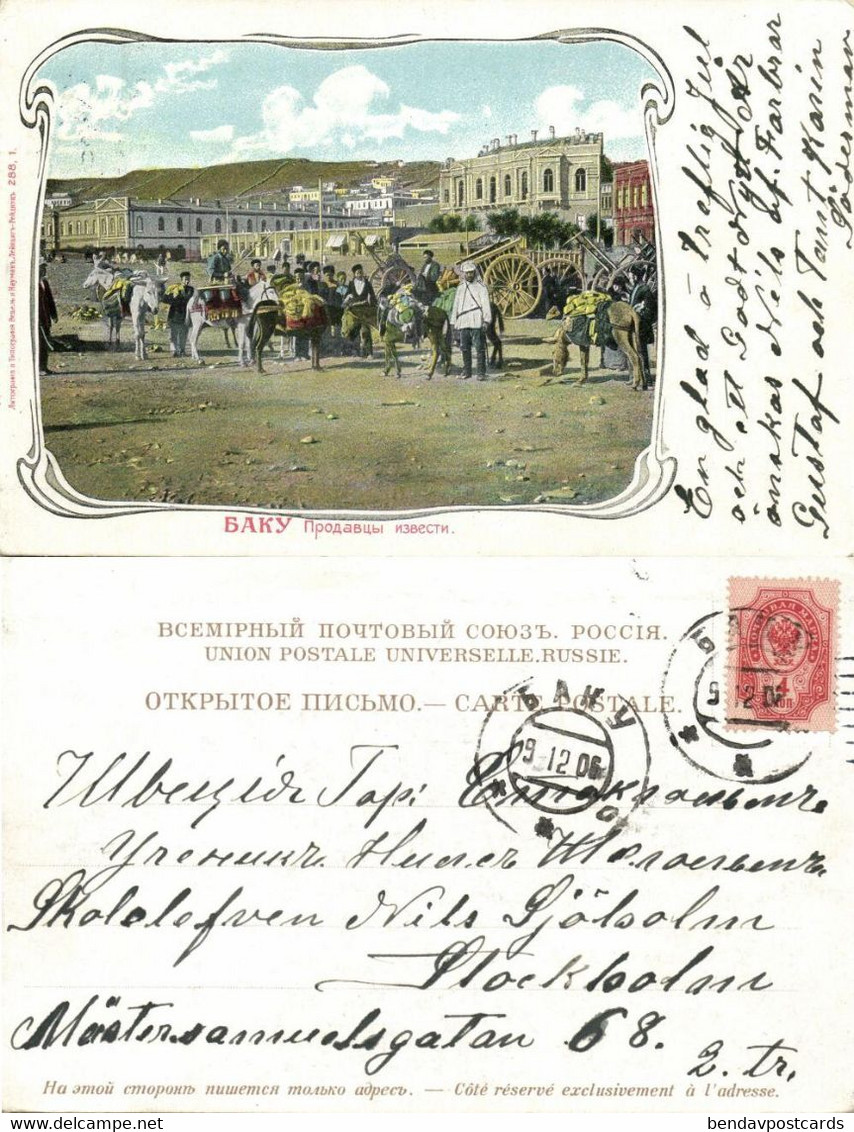 Литографія и Типографія Ридель и Науманъ, Лейпцигъ-Рейдницъ 288, 1.
БАКУ Продавцы извести.
En glad & treflig Jul
och ett Godt Nytt År
önskas Nils af. Farbror
Gustaf och Tant Karin
Söderman
ВСЕМІРНЫЙ ПОЧТОВЫЙ СОЮЗЪ. РОССІЯ.
UNION POSTALE UNIVERSELLE.RUSSIE.
ОТКРЫТОЕ ПИСЬМО.— CARTE POSTALE.
ПОЧТОВАЯ МАРКА
4 КОП
БАКУ
9 12 06
БАКУ
9.12.06
Швеція Гор: Стокгольмъ
Ученикъ Нильсъ
Skolelefven Nils Sjöholm
Stockholm
Mästersamuelsgatan 68.
2. tr.
На этой сторонѣ пишется только адресъ. — Côté réservé exclusivement à l'adresse.
bendavpostcards